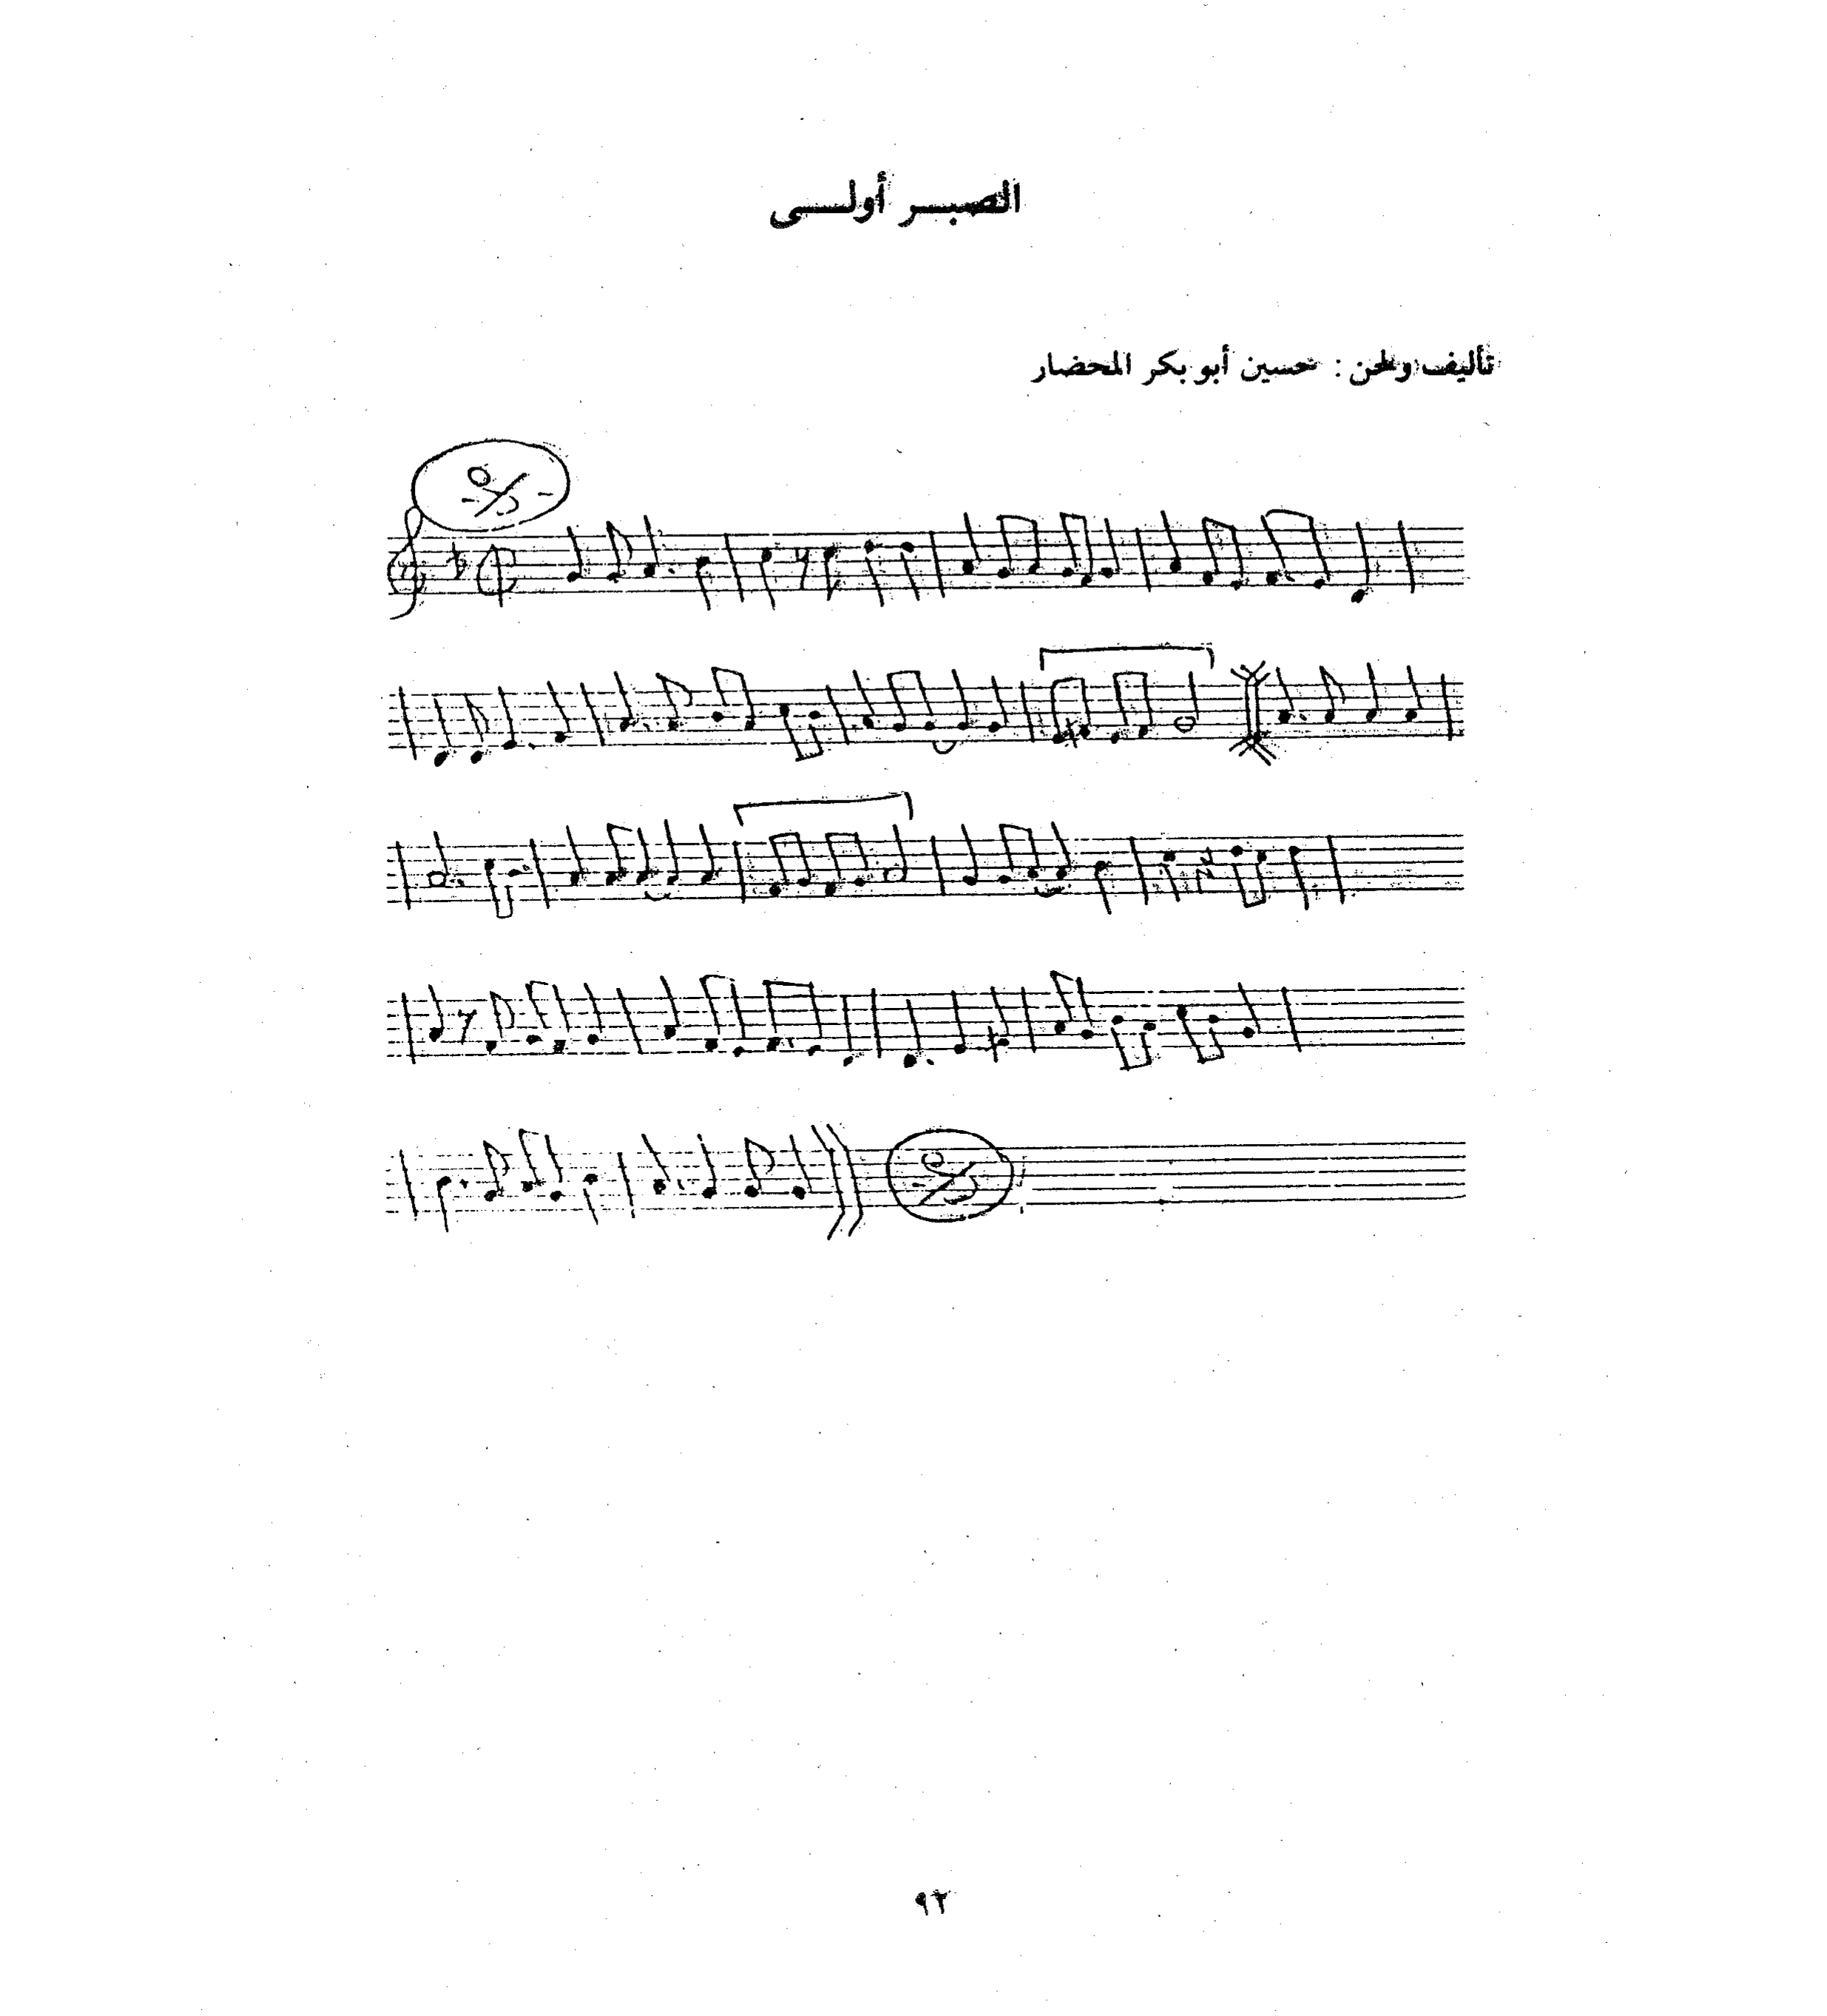 الصبر أولى
تأليف ولحن : حسين أبو بكر المحضار
٩٢